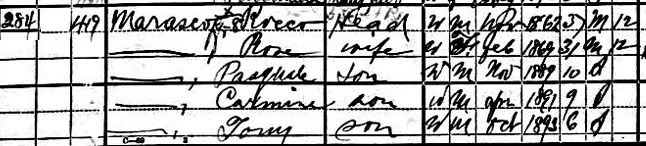 284 419 Marasco, Rocco Head W M Apr 1862 37 M 12
——, Rose wife W F Feb 1869 31 M 12
——, Pasquale son W M Nov 1889 10 S
——, Carmine son W M Apr 1891 9 S
——, Tony son W M Oct 1893 6 S